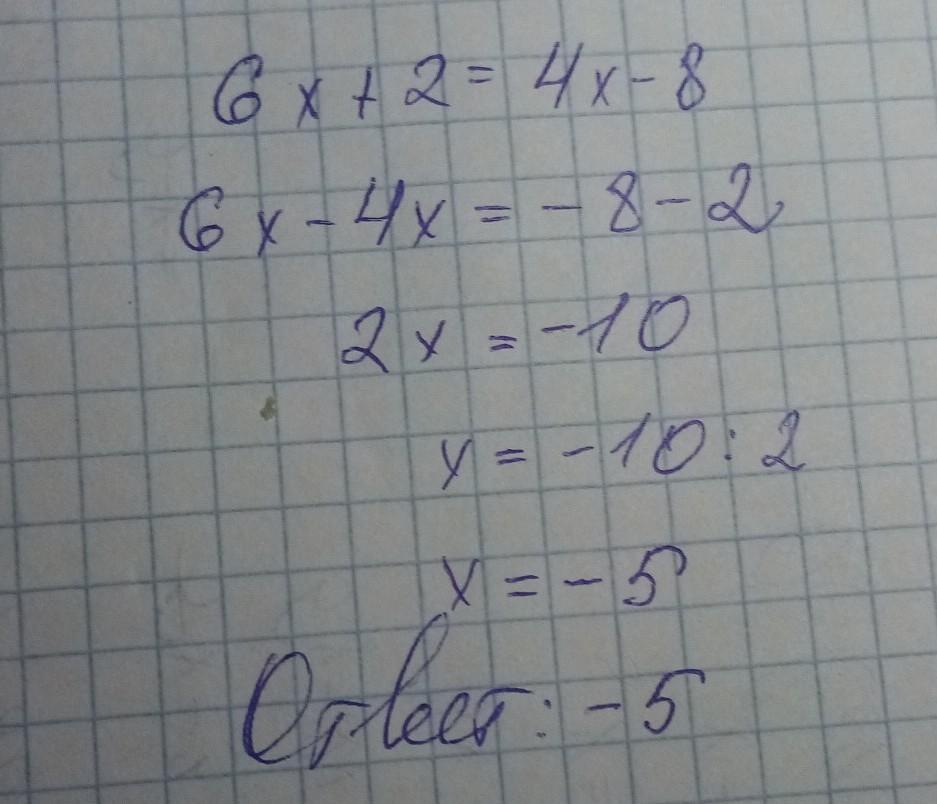 6x+2=4x-8
6x-4x=-8-2
2x=-10
x=-10:2
x=-5
Ответ:-5